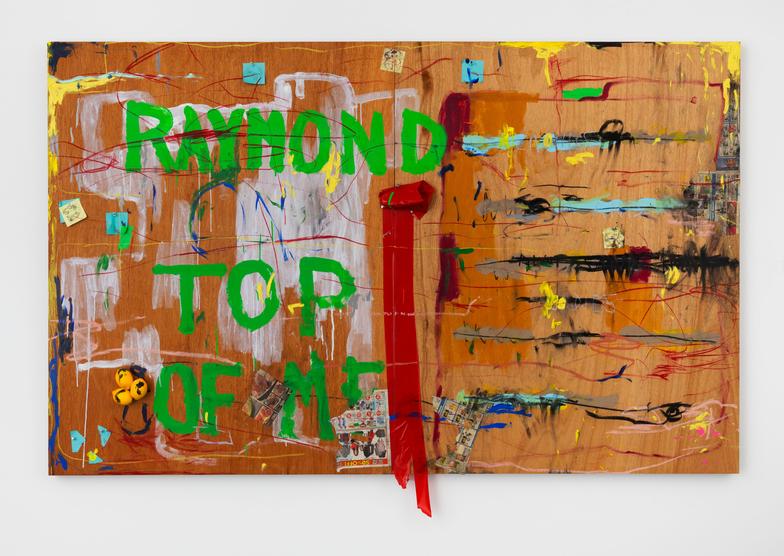 RAYMOND
TOP
OF ME